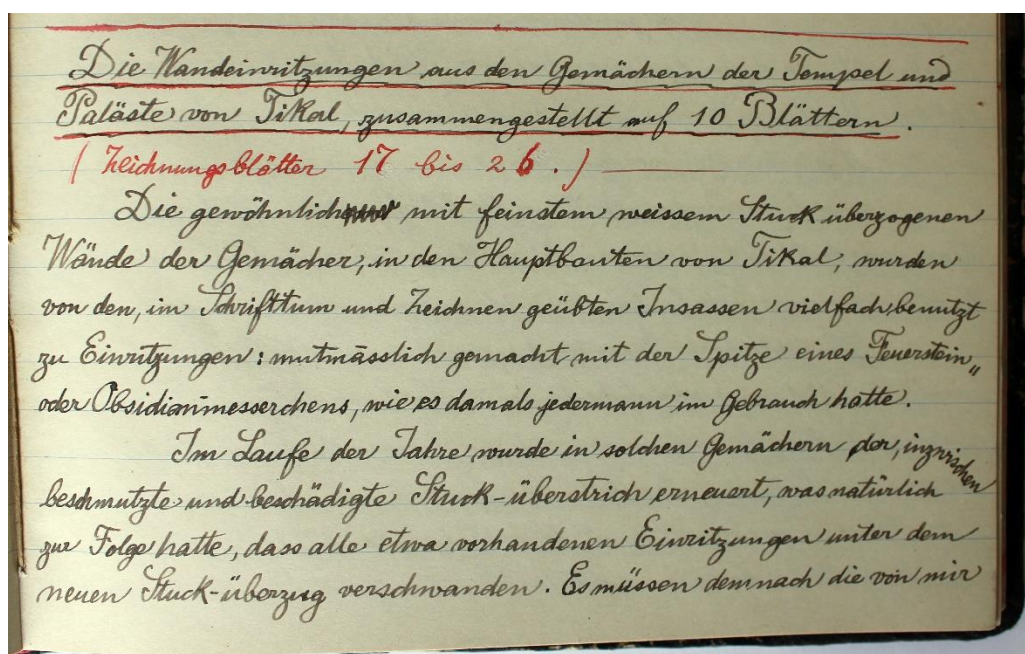 Die Wandeinritzungen aus den Gemächern der Tempel und
Paläste von Tikal, zusammengestellt auf 10 Blättern.
(Zeichnungsblätter 17 bis 26.)
Die gewöhnlich mit feinstem weissem Stuck überzogenen
Wände der Gemächer, in den Hauptbauten von Tikal, wurden
von den, im Schrifttum und Zeichnen geübten Insassen vielfach benutzt
zu Einritzungen: mutmässlich gemacht mit der Spitze eines Feuerstein„
oder Obsidianmesserchens, wie es damals jedermann im Gebrauch hatte.
Im Laufe der Jahre wurde in solchen Gemächern der, inzwischen
beschmutzte und beschädigte Stuck-überstrich erneuert, was natürlich
zur Folge hatte, dass alle etwa vorhandenen Einritzungen unter dem
neuen Stuck-überzug verschwanden. Es müssen demnach die von mir